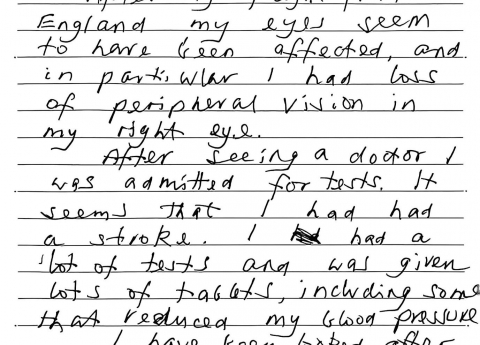 England my eyes seem
to have been affected, and
in particular I had loss
of peripheral vision in
my right eye.
After seeing a doctor I
was admitted for tests. It
seems that I had had
a stroke. I had a
lot of tests and was given
lots of tablets, including some
that reduced my blood pressure
I have been